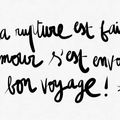 a rupture est fai
mour s'est envo
bon voyage !